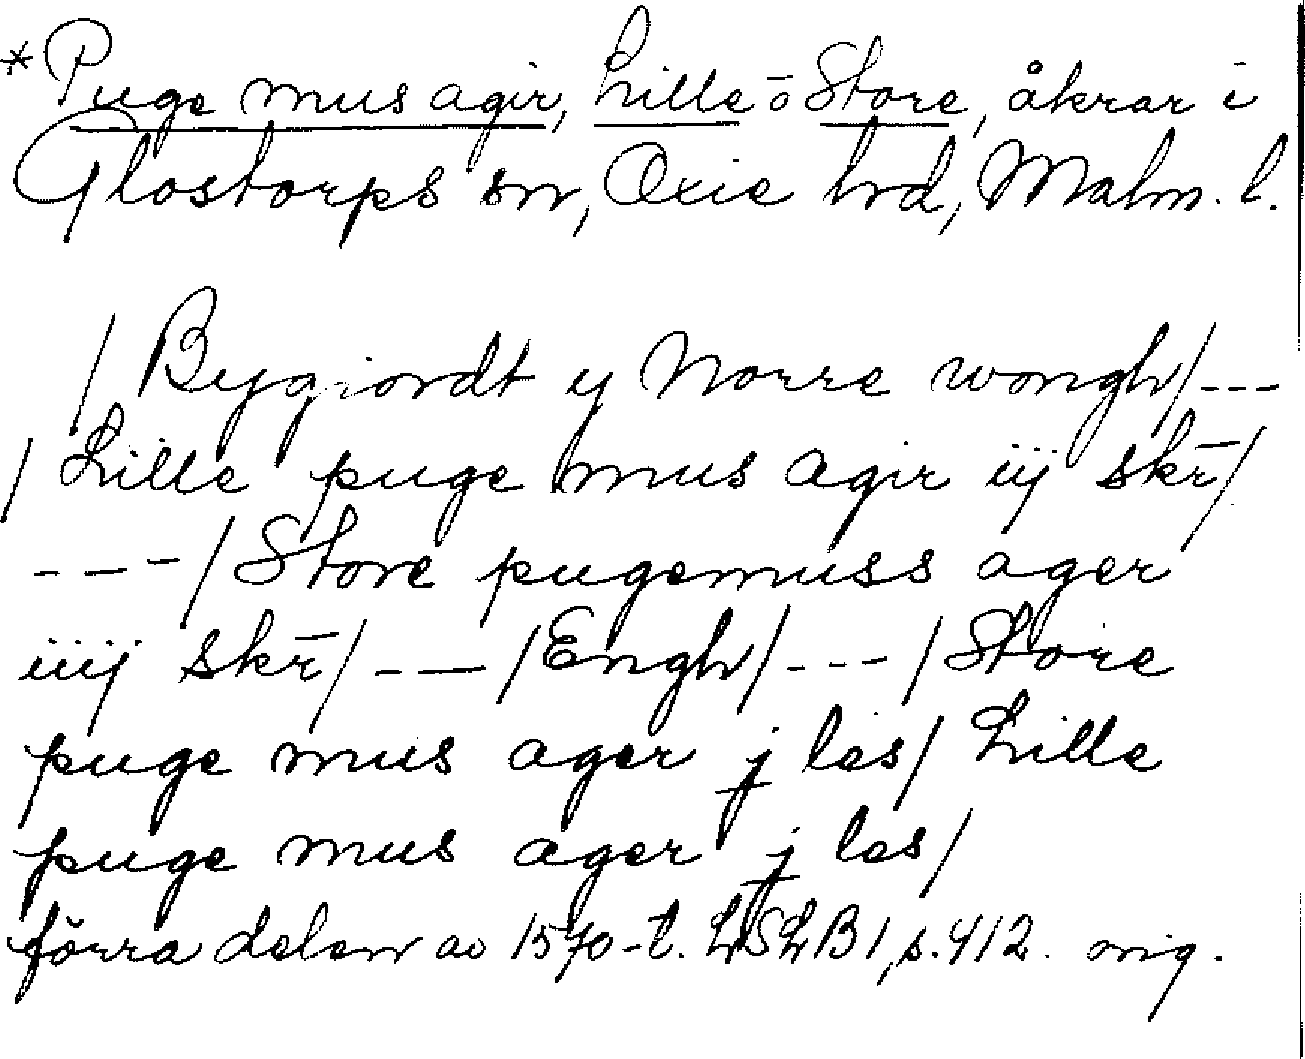 *Puge mus agir, Lille o Store, åkrar i
Glostorps sn, Oxie hd, Malm. l.
/ Bygiordt y Norre wongh/---
/ Lille puge mus agir iij skr̄/
---/ Store pugemuss ager
iiij skr̄/---/Engh/---/Store
puge mus ager j les/ Lille
puge mus ager j les/
förra delen av 1570-t. LSLB1, s. 412. orig.